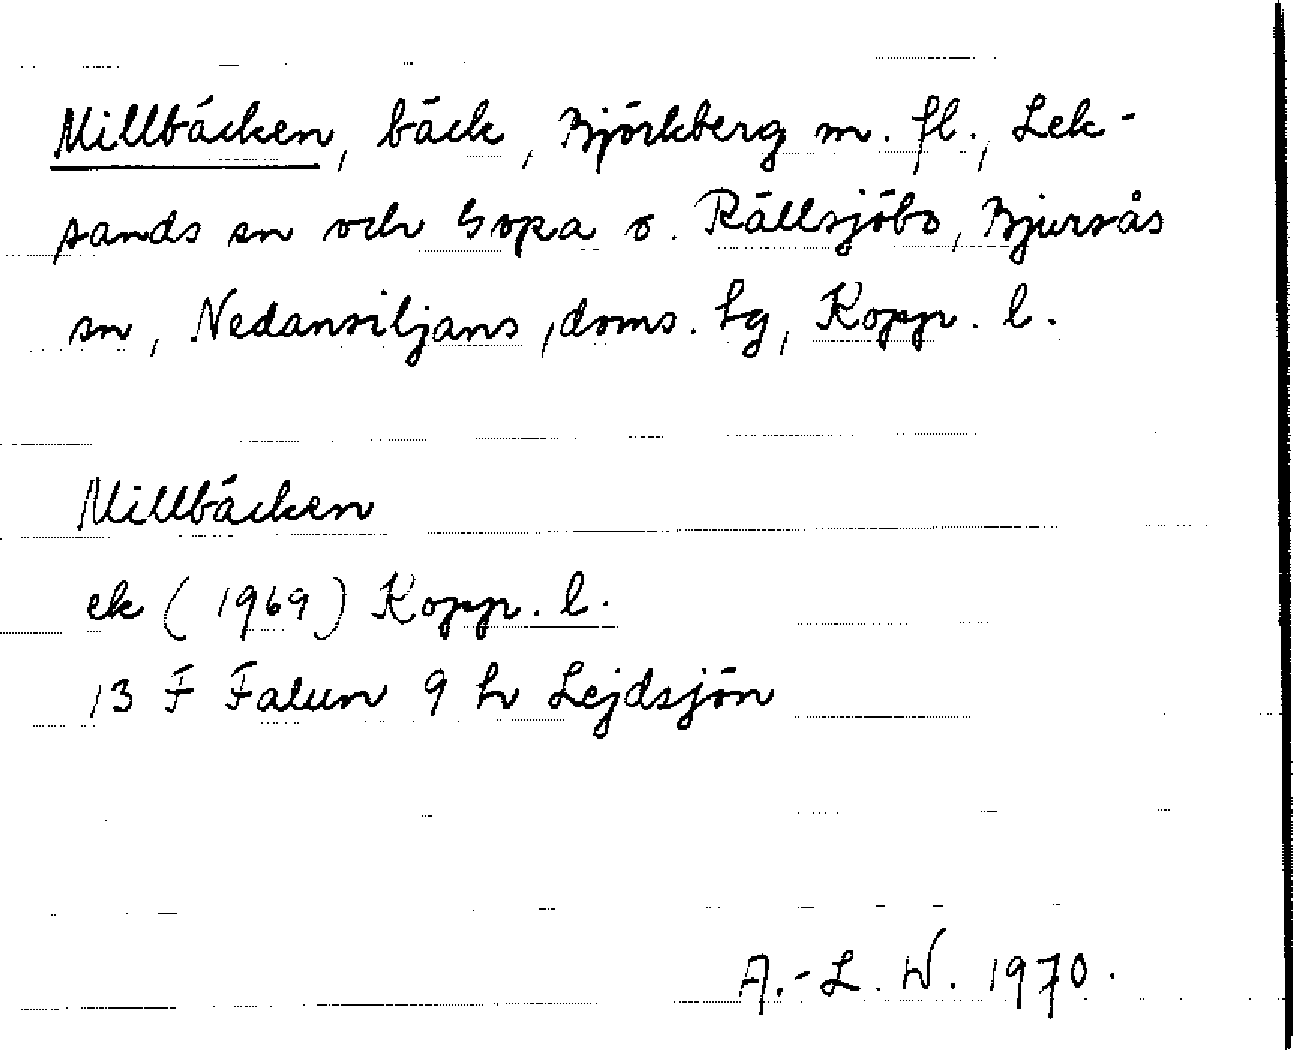 Millbäcken, bäck, Björkberg m. fl., Lek-
sands sn och Sopa o. Rällsjöbo, Bjursås
sn, Nedansiljans, doms. hg, Kopp. l.
Millbäcken
ek (1969) Kopp. l.
13 F Falun 9 h Lejdsjön
A.-L. W. 1970.